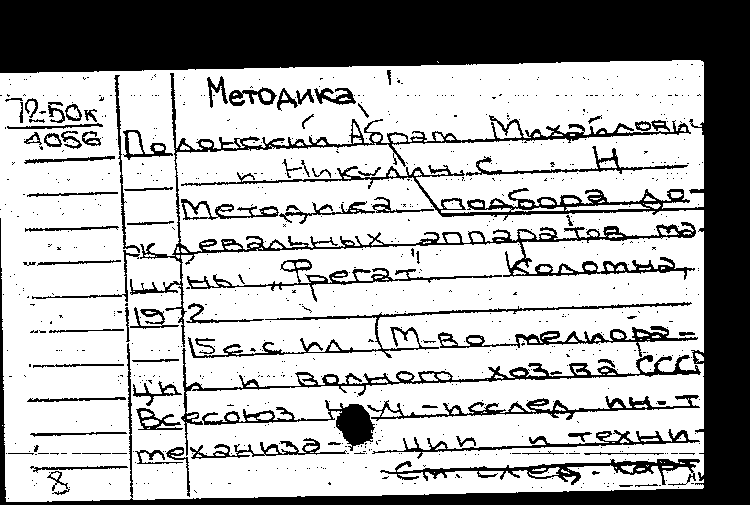 Методика
72-50к
4056
Полонский Абрам Михайлович
и Никулин, С. Н
Методика подбора до-
ждевальных аппаратов ма-
шины „Фрегат" Коломна,
1972
15 с. с ил. (М-во мелиора-
ции и водного хоз-ва СССР
Всесоюз. науч.-исслед. ин-т
механиза- ции и техни-
См. след. карт
8